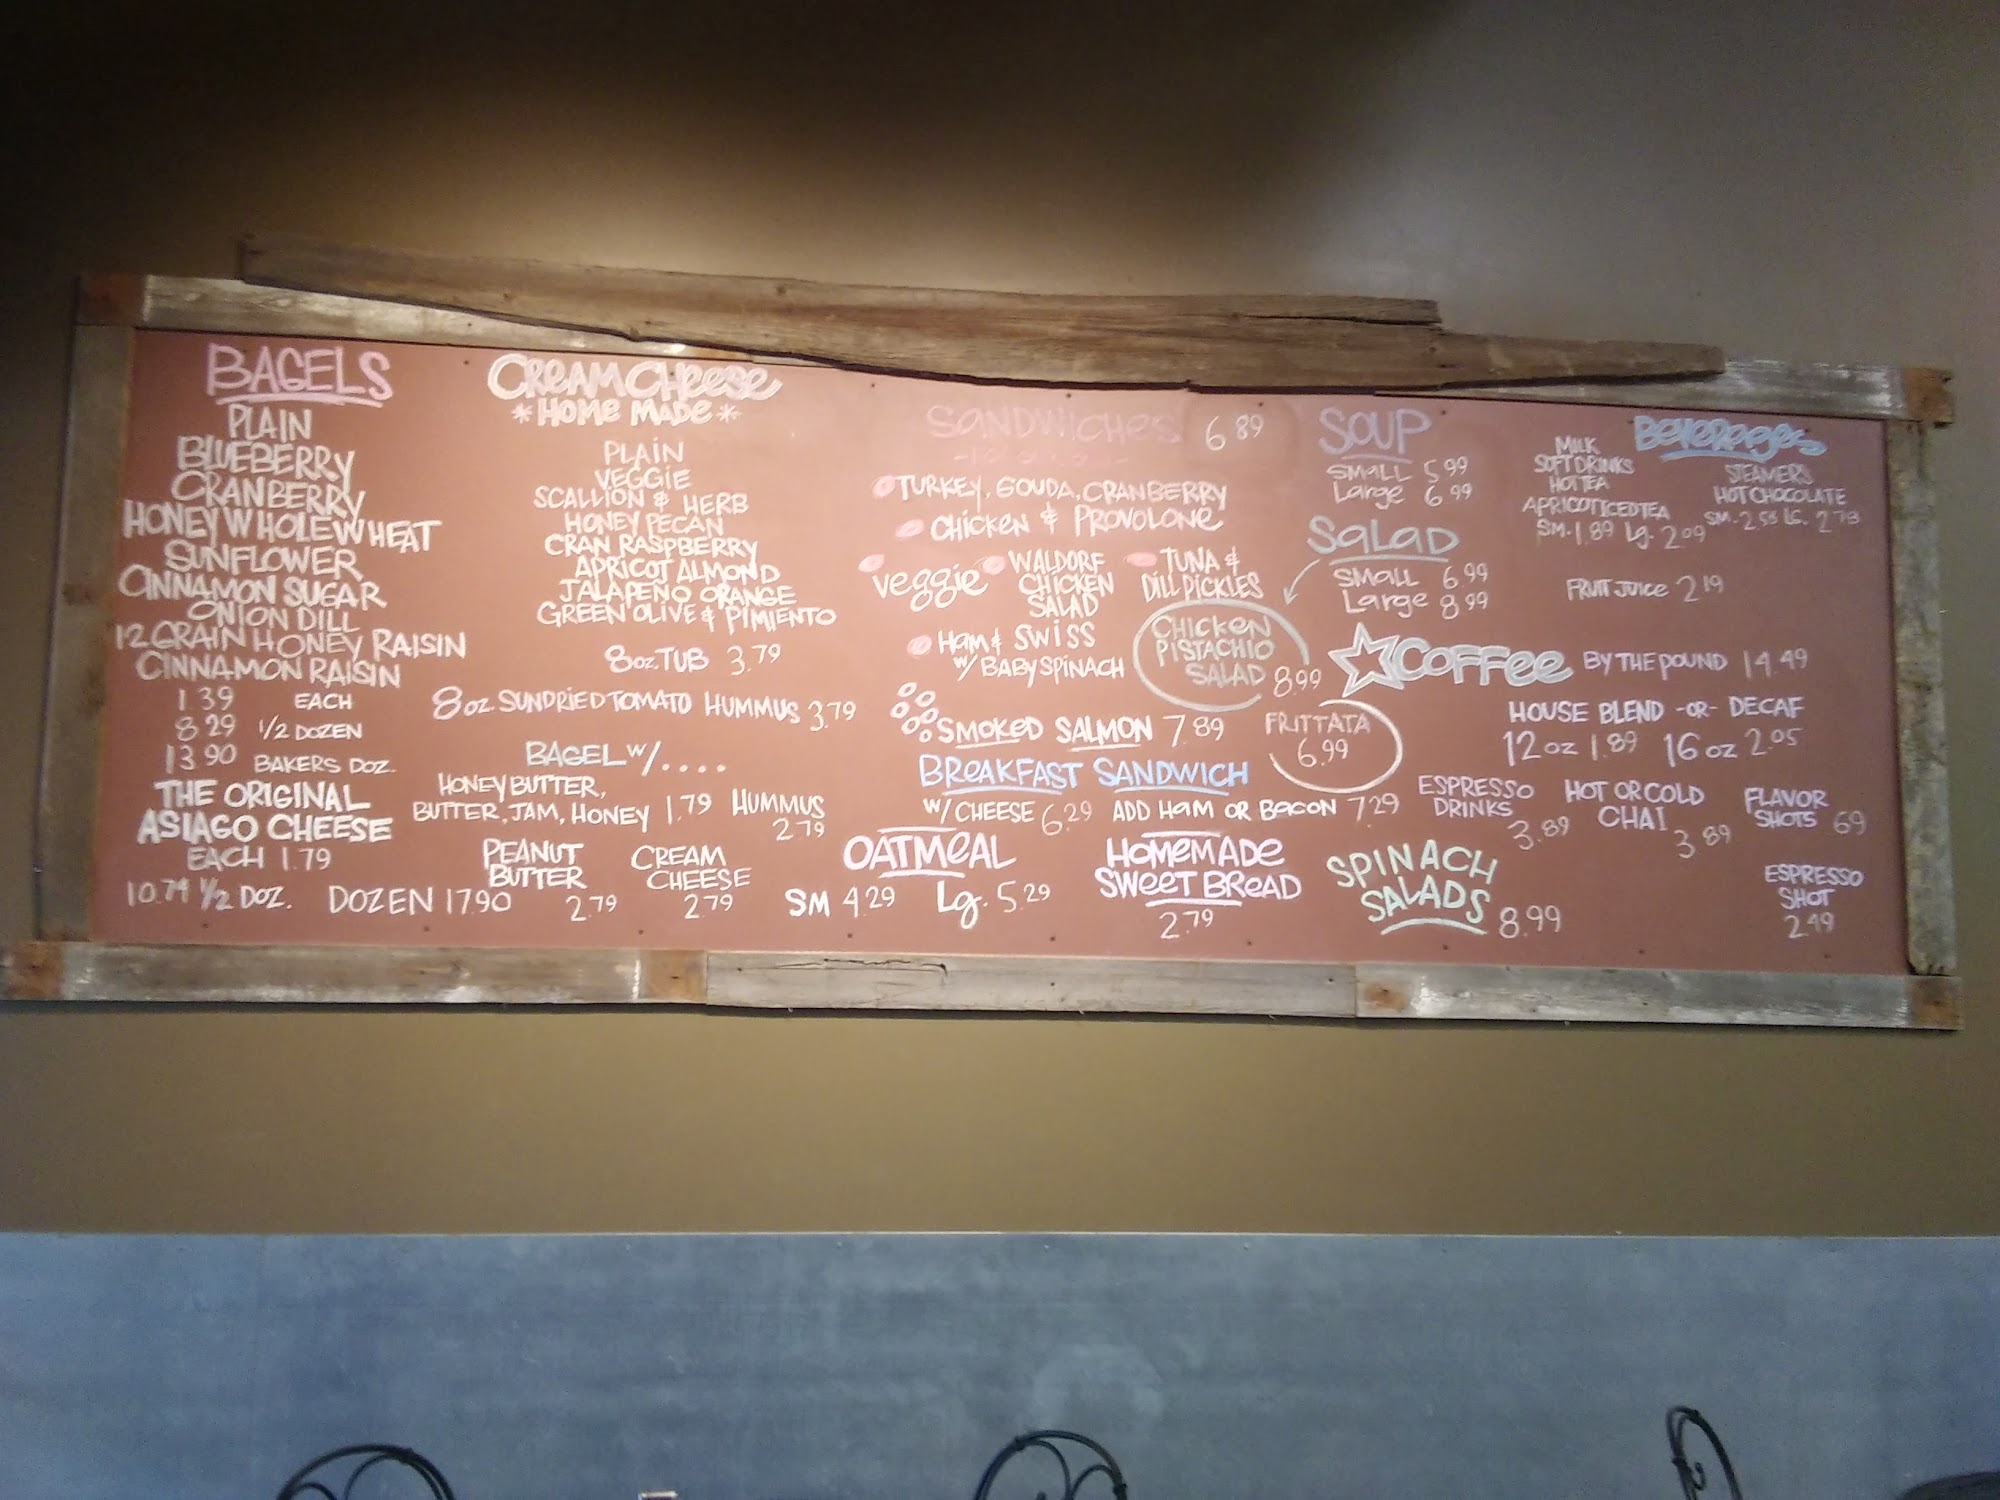 BAGELS
PLAIN
BLUEBERRY
CRANBERRY
HONEY WHOLE WHEAT
SUNFLOWER
CINNAMON SUGAR
ONION DILL
12 GRAIN HONEY RAISIN
CINNAMON RAISIN
1.39 EACH
8.29 1/2 DOZEN
13.90 BAKERS DOZ.
THE ORIGINAL
ASIAGO CHEESE
EACH 1.79
10.74 1/2 DOZ. DOZEN 17.90
CREAM CHEESE
*HOME MADE*
PLAIN
VEGGIE
SCALLION & HERB
HONEY PECAN
CRAN RASPBERRY
APRICOT ALMOND
JALAPENO ORANGE
GREEN OLIVE & PIMIENTO
8oz. TUB 3.79
8oz. SUNDRIED TOMATO HUMMUS 3.79
BAGEL W/....
HONEY BUTTER,
BUTTER, JAM, HONEY 1.79
HUMMUS
2.79
PEANUT
BUTTER
2.79
CREAM
CHEESE
2.79
SANDWICHES 6.89
TURKEY, GOUDA, CRANBERRY
CHICKEN & PROVOLONE
veggie
WALDORF
CHICKEN
SALAD
TUNA &
DILL PICKLES
HAM & SWISS
W/ BABY SPINACH
CHICKEN
PISTACHIO
SALAD 8.99
SMOKED SALMON 7.89
FRITTATA
6.99
BREAKFAST SANDWICH
W/ CHEESE 6.29 ADD HAM OR BACON 7.29
OATMEAL
SM 4.29 Lg. 5.29
HOMEMADE
SWEET BREAD
2.79
SOUP
SMALL 5.99
Large 6.99
SALAD
SMALL 6.99
Large 8.99
Beverages
MILK
SOFT DRINKS
HOT TEA
APRICOT ICED TEA
SM. 1.89 Lg. 2.09
STEAMERS
HOT CHOCOLATE
SM. 2.58 LG. 2.78
FRUIT JUICE 2.19
COFFEE BY THE POUND 14.49
HOUSE BLEND -OR- DECAF
12 oz 1.89 16 oz 2.05
ESPRESSO
DRINKS
3.89
HOT OR COLD
CHAI
3.89
FLAVOR
SHOTS 69
SPINACH
SALADS 8.99
ESPRESSO
SHOT
2.49